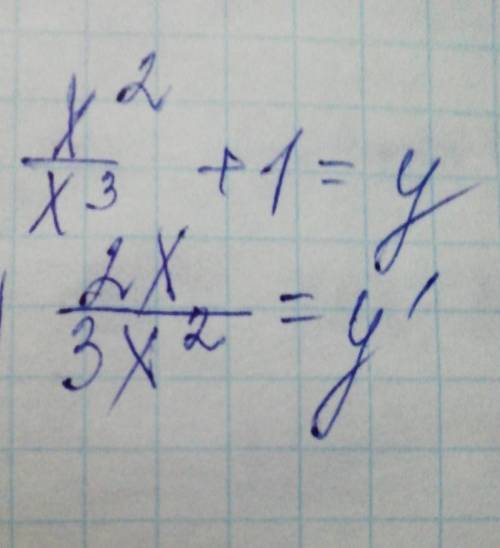 x²/x³ + 1 = y
2x/3x² = y'